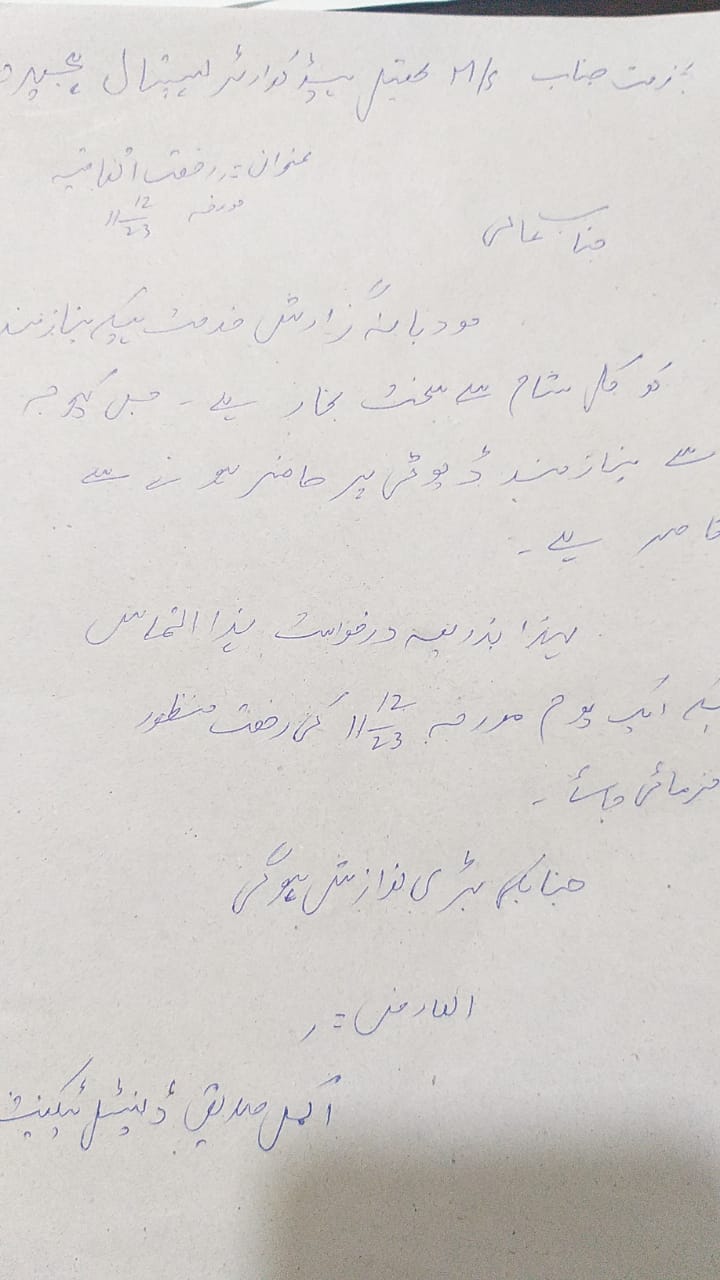 بخدمت جناب M/S تحصیل ہیڈ کوارٹر ہسپتال
عنوان:۔ رخصت اتفاقیہ
مورخہ 11-12-23
جناب عالی
مودبانہ گزارش خدمت ہیکہ نیازمند
کو کل شام سے سخت بخار ہے۔ جس کیوجہ
سے نیازمند ڈیوٹی پر حاضر ہونے سے
قاصر ہے۔
لہذا بذریعہ درخواست ہذا التماس
ہیکہ ایک یوم مورخہ 11-12-23 کی رخصت منظور
فرمائی جائے۔
جنابکی بڑی نوازش ہوگی
العارض:۔
اکمل صدیق ڈینٹل ٹیکنیشن